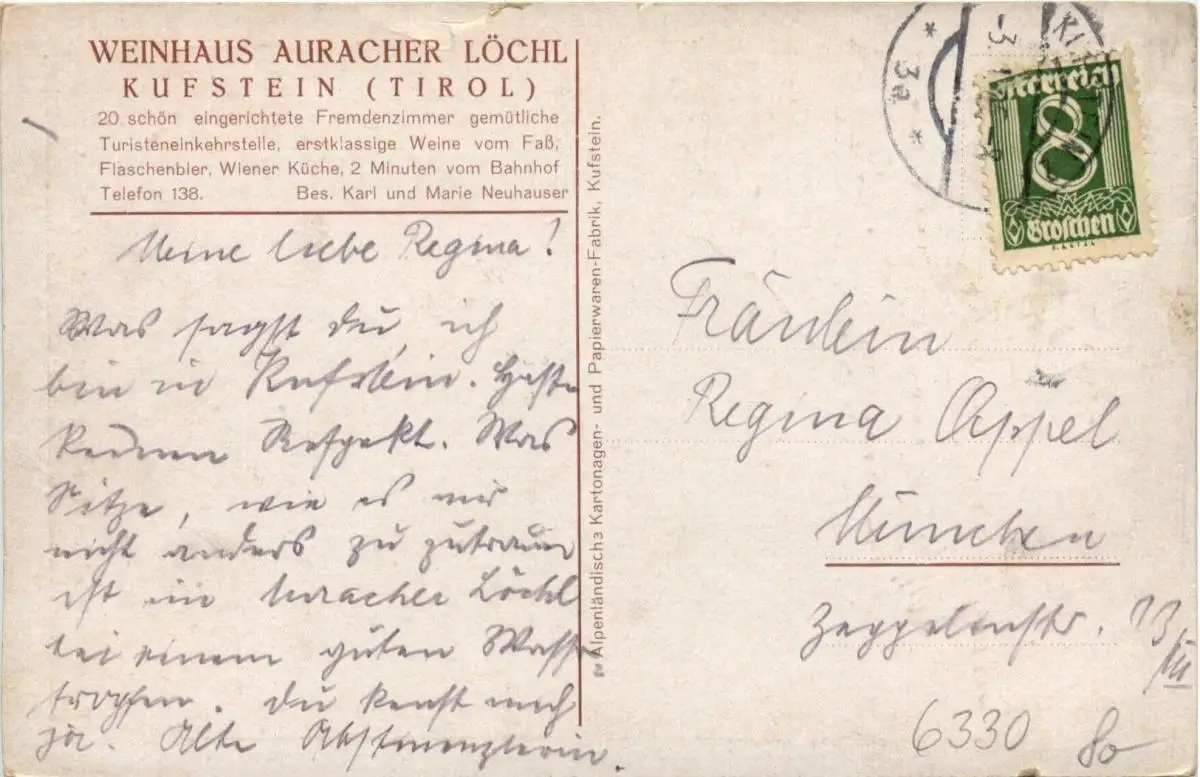 WEINHAUS AURACHER LÖCHL
KUFSTEIN (TIROL)
20 schön eingerichtete Fremdenzimmer gemütliche
Turisteneinkehrstelle, erstklassige Weine vom Faß,
Flaschenbier, Wiener Küche, 2 Minuten vom Bahnhof
Telefon 138. Bes. Karl und Marie Neuhauser
Meine liebe Regina!
Was sagst du, ich
bin in Kufstein. Hast
keinen Respekt. Was
Sitze, wie es mir
nicht anders zu zutrauen
ist im Auracher Löchl
bei einem guten Wasser
tropfen. Du kennst mich
ja. Alte Abstinenzlerin.
Alpenländische Kartonagen- und Papierwaren-Fabrik, Kufstein.
3a
Österreich
8
Groschen
Fräulein
Regina Appel
München
Zeppelinstr. 73
III
6330
80